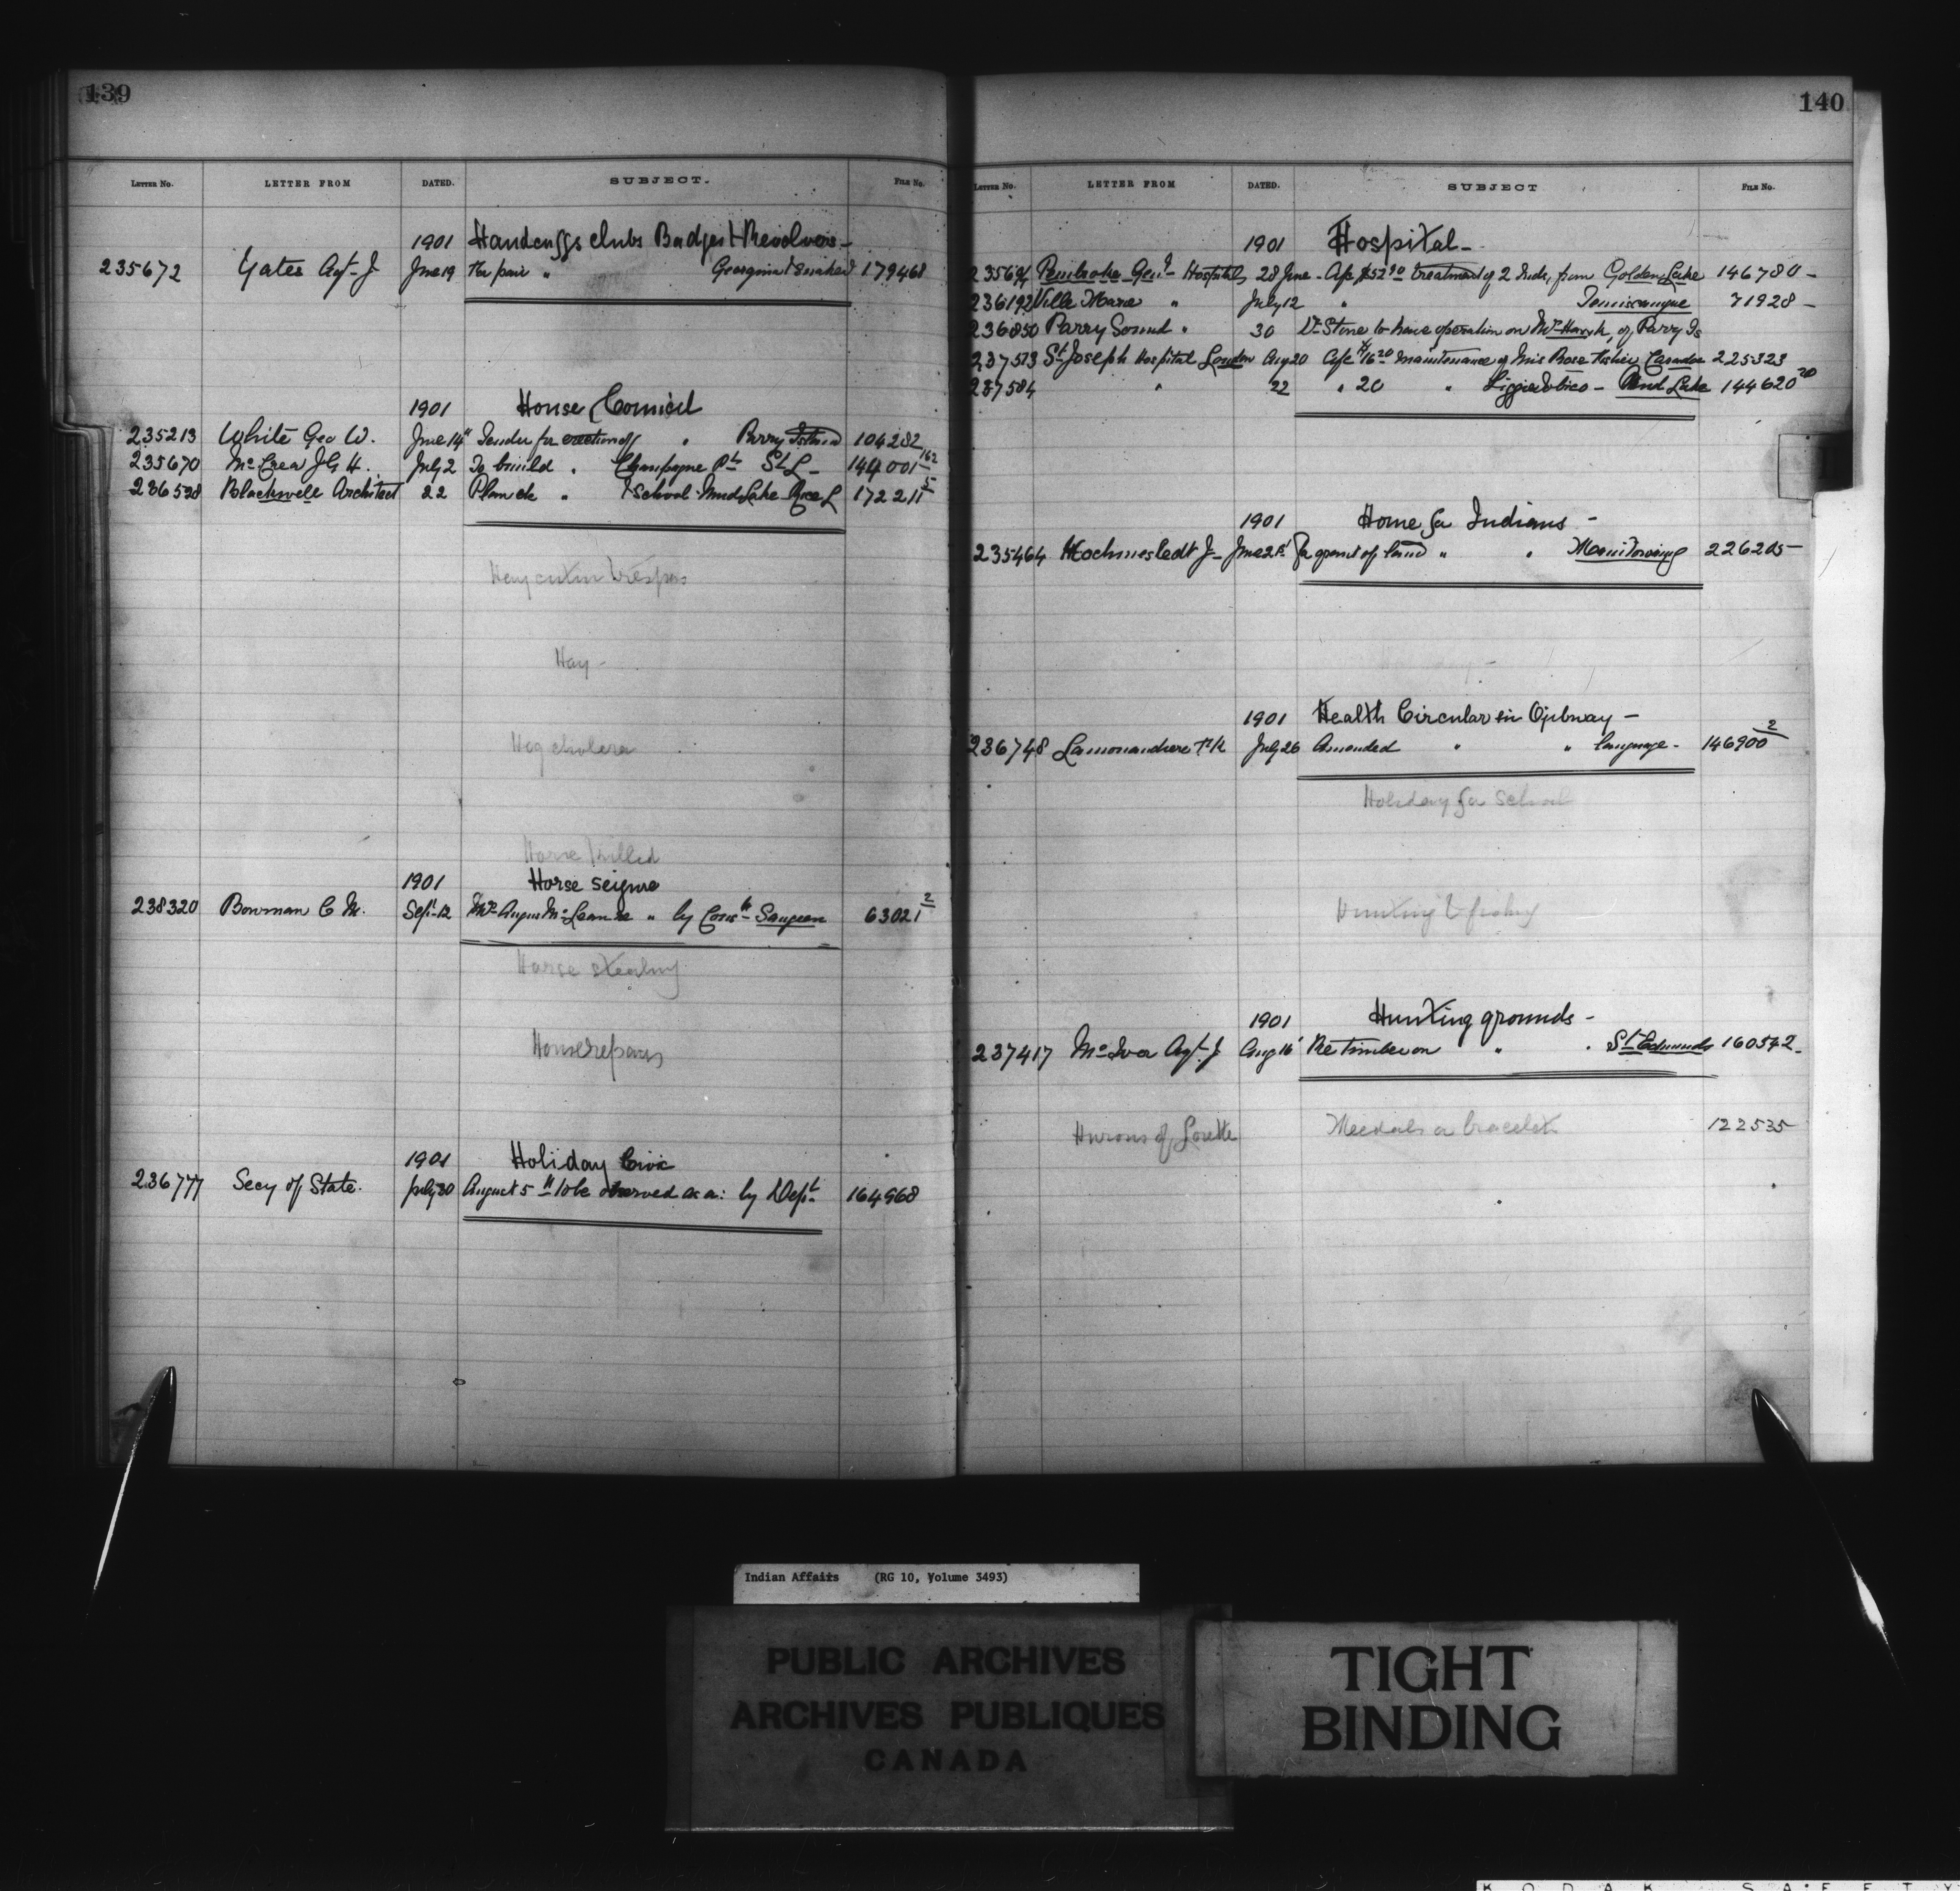 139
LETTER No. LETTER FROM DATED. SUBJECT. FILE No.
1901 Handcuffs clubs Badges & Revolvers -
235672 Yates Agt- J June 19 per pair " Georgina & Snake I 179468
1901 House Council
235213 White Geo W. June 14" Tender for erection of " Parry Island 104282
235670 McCrea J G H. July 2 To build " Champagne Pt St L - 144001 162
236598 Blackwell Architect 22 Plan de " & School - Mud Lake - Rice L 172211 5
Hay cuttin trespass
Hay -
Hog cholera
Horse killed
1901 Horse seizure
238320 Bowman C M. Sept-12 Mr Angus McLean re " by Cons - Saugeen 63021 2
Horse stealing
House repairs
1901 Holiday Civic
236777 Secy of State. July 30 August 5th to be observed as a: by Dept. 164968
140
LETTER No. LETTER FROM DATED. SUBJECT FILE No.
1901 Hospital -
235694 Pembroke Genl- Hospital 28 June - a/c $52 90 treatment of 2 Inds, from Golden Lake 146780 -
236192 Ville Marie " July 12 " Temiscamgue 71928 -
236850 Parry Sound " 30 Dr Stone to have operation on of Parry Is
237513 St Joseph Hospital London Aug 20 a/c $16 20 maintenance of Miss Rose Fisher Caradoc 225323
237584 " 22 " 20 " Lizzie - Mud Lake 144620 20
1901 Home for Indians -
235464 Hochmestedt J - June 21st for grant of land " " Manitowaning 226205 -
1901 Health Circular in Ojibway -
236748 Lamorandiere July 26 Amended " " language - 146900 2
Holiday for School
Hunting & fishing
1901 Hunting grounds -
237417 McIver Agt. J Aug 16 Re timber on " " St Edmunds 160542 -
Hurons of Lorette Medals or bracelets 122535
Indian Affairs (RG 10, Volume 3493)
PUBLIC ARCHIVES
ARCHIVES PUBLIQUES
CANADA
TIGHT
BINDING
KODAK SAFETY